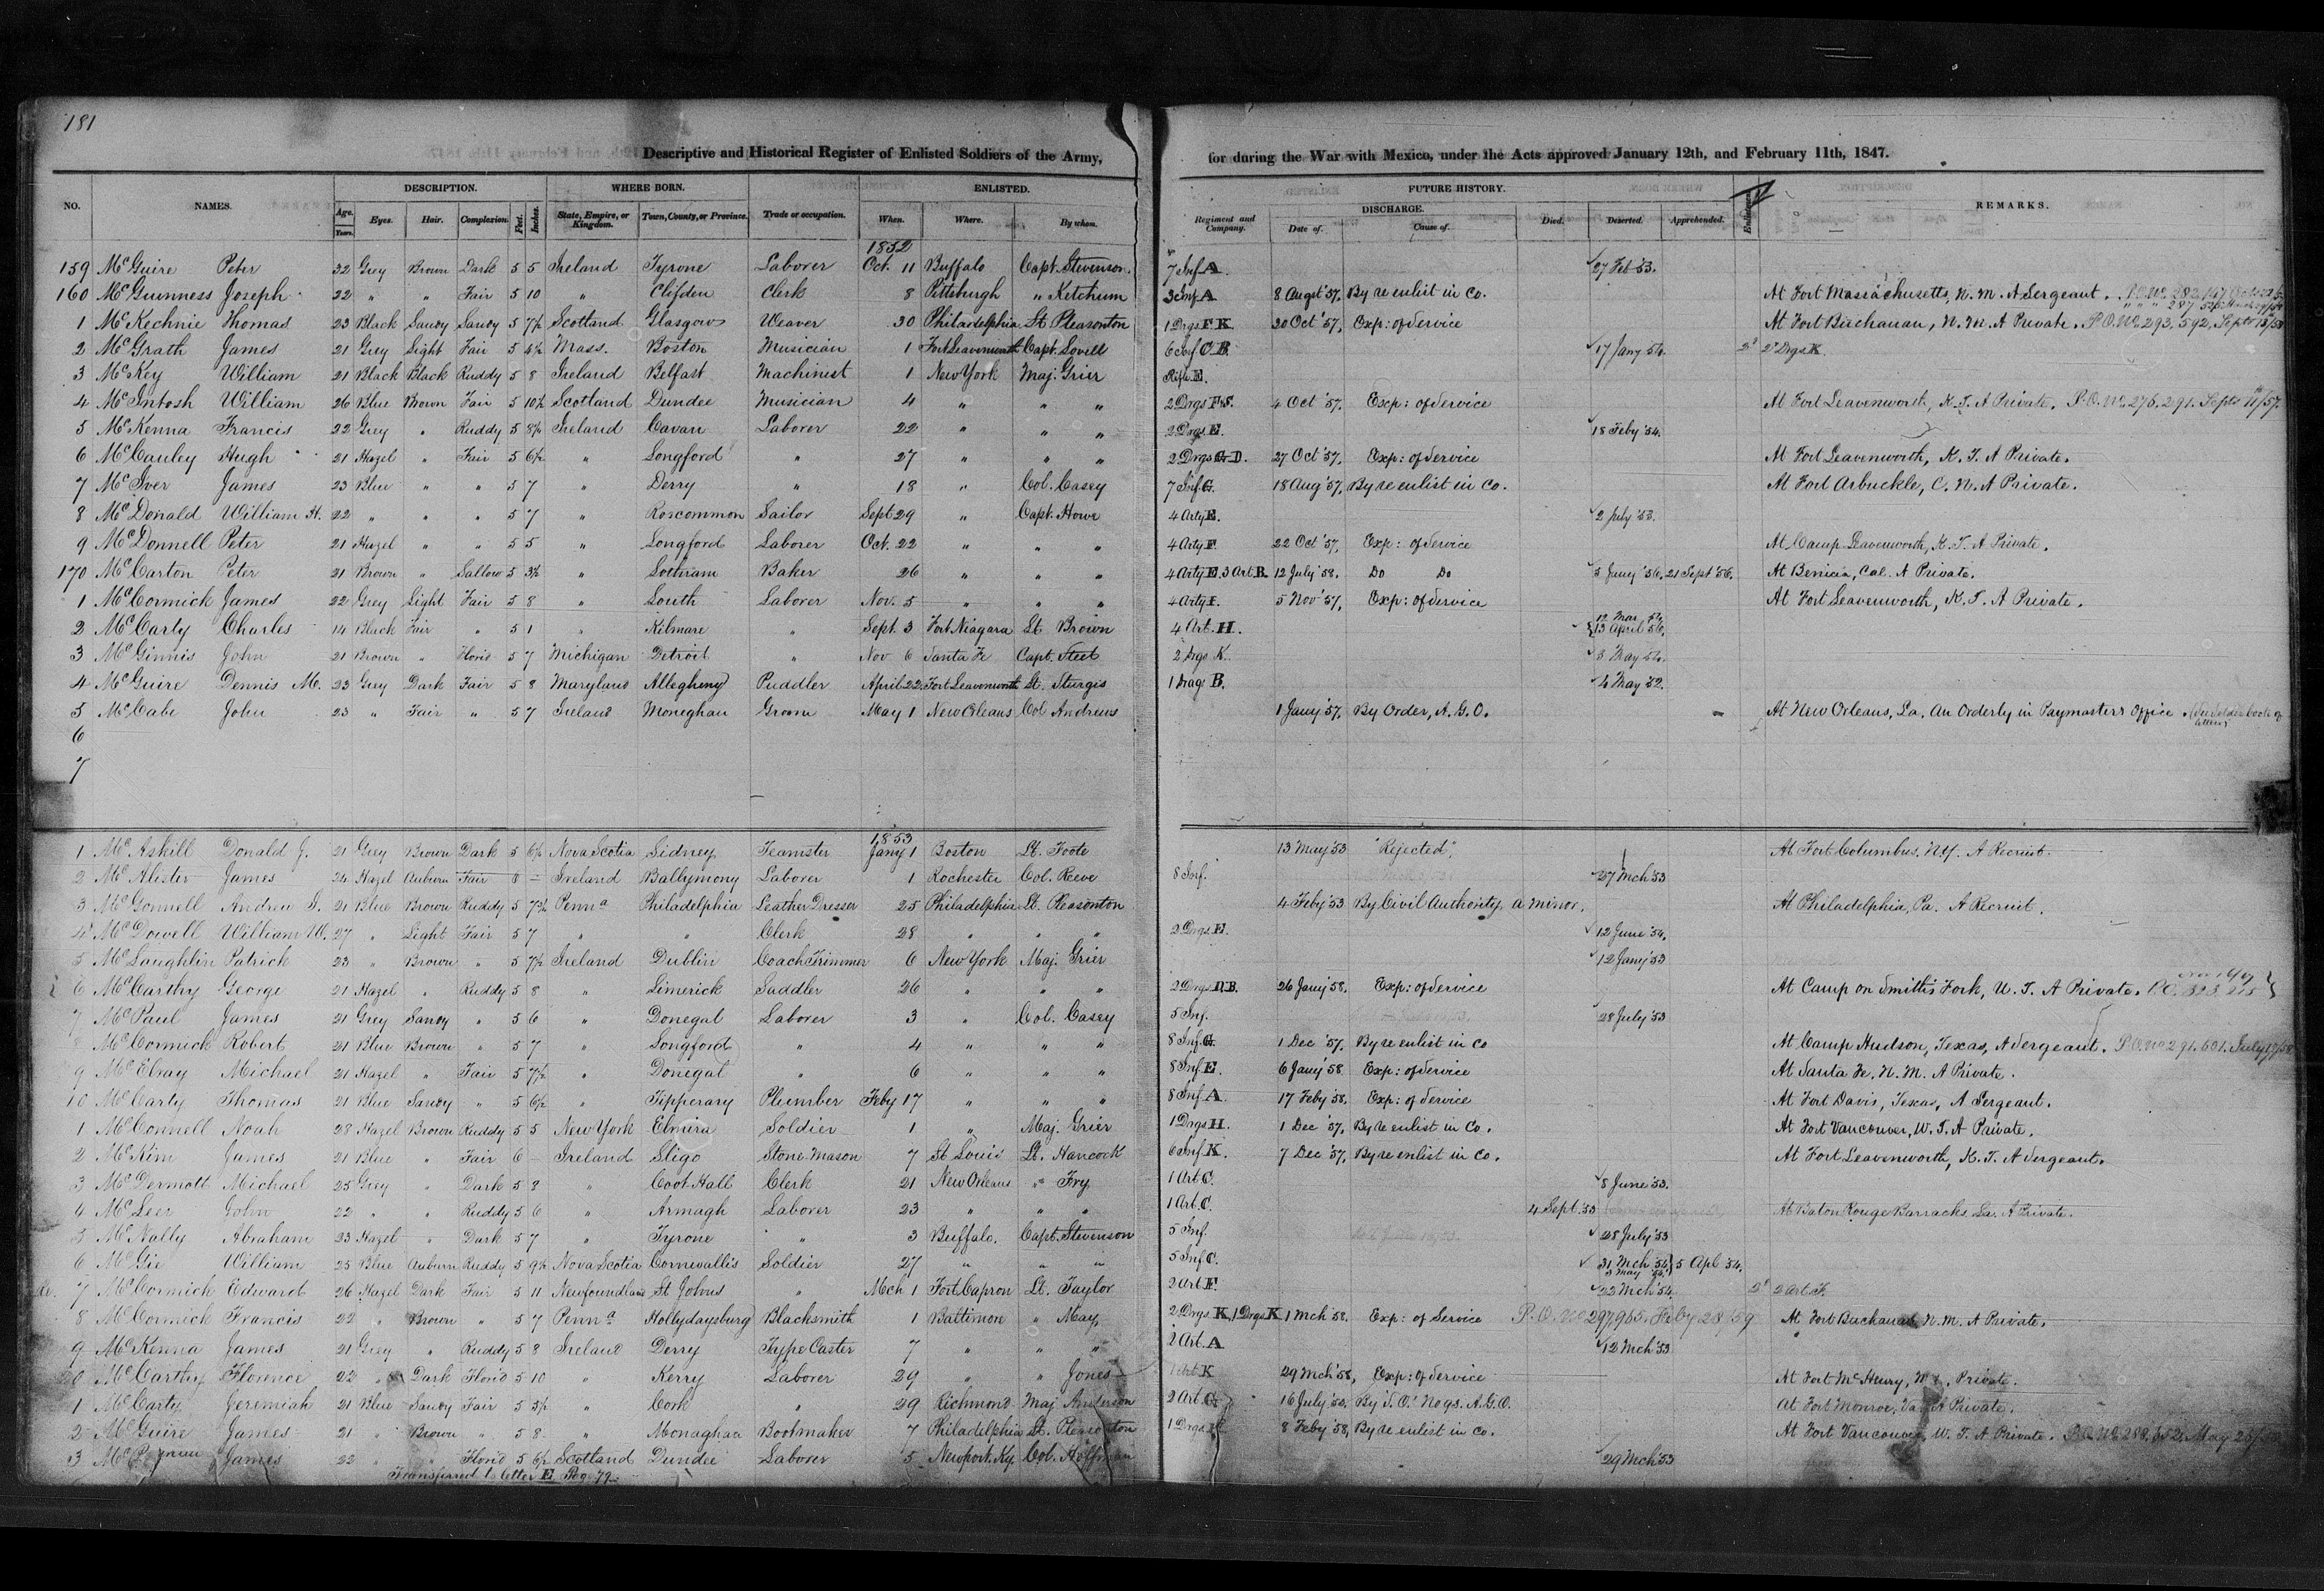 181
Descriptive and Historical Register of Enlisted Soldiers of the Army, for during the War with Mexico, under the Acts approved January 12th, and February 11th, 1847.
DESCRIPTION. WHERE BORN. ENLISTED. FUTURE HISTORY.
NO. NAMES. Age. Years. Eyes. Hair. Complexion. Feet. Inches. State, Empire, or Kingdom. Town, County, or Province. Trade or occupation. When. Where. By whom. Regiment and Company. DISCHARGE. Date of. Cause of. Died. Deserted. Apprehended. Enlistment. REMARKS.
1852
159 McGuire Peter 32 Grey Brown Dark 5 5 Ireland Tyrone Laborer Oct. 11 Buffalo Capt. Stevenson. 7 Inf A. 27 Feb '53.
160 McGuinness Joseph 22 " " Fair 5 10 " Clifden Clerk 8 Pittsburgh " Ketchum 3 Inf A 8 Augst '57, By re enlist in Co. At Fort Massachusetts, N. M. A Sergeant.
1 McKechnie Thomas 23 Black Sandy Sandy 5 7½ Scotland Glasgow Weaver 30 Philadelphia Lt Pleasonton 1 Drgs F K. 30 Oct '57, Exp: of Service At Fort Buchanan, N. M. A Private. P.O. No. 293,592, Septr 13/58
2 McGrath James 21 Grey Light Fair 5 4½ Mass. Boston Musician 1 Fort Leavenworth Capt. Lovell 6 Inf C. B. 17 Jany 54. 2d 2d Drgs K.
3 McKey William 21 Black Black Ruddy 5 8 Ireland Belfast Machinist 1 New York Maj. Grier Rifle E.
4 McIntosh William 26 Blue Brown Fair 5 10½ Scotland Dundee Musician 4 " " " 2 Drgs F. S. 4 Oct '57. Exp: of Service At Fort Leavenworth, K. T. A Private. P.O. No. 276,291. Septr 11/57.
5 McKenna Francis 22 Grey " Ruddy 5 8½ Ireland Cavan Laborer 22 " " " 2 Drgs E. 18 Feby '54.
6 McCauley Hugh 21 Hazel " Fair 5 6½ " Longford " 27 " " " 2 Drgs G. D. 27 Oct '57. Exp: of Service At Fort Leavenworth, K. T. A Private.
7 McIver James 23 Blue " " 5 7 " Derry " 18 " Col. Casey 7 Inf G. 18 Aug '57, By re enlist in Co. At Fort Arbuckle, C. N. A Private.
8 McDonald William H. 22 " " " 5 7 " Roscommon Sailor Sept 29 " Capt. Howe 4 Arty E. 2 July '53.
9 McDonnell Peter 21 Hazel " " 5 5 " Longford Laborer Oct. 22 " " " 4 Arty F. 22 Oct '57, Exp: of Service At Camp Leavenworth, K. T. A Private.
170 McCarton Peter 21 Brown " Sallow 5 3½ " Baker 26 " " " 4 Arty E. 3 Art B. 12 July '58. Do Do 5 Jany '56. 21 Sept '56. At Benicia, Cal. A Private.
1 McCormick James 22 Grey Light Fair 5 8 " Louth Laborer Nov. 5 " " " 4 Arty I. 5 Nov '57, Exp: of Service At Fort Leavenworth, K. T. A Private.
2 McCarty Charles 14 Black Fair " 5 1 " Kilmare " Sept. 3 Fort Niagara Lt Brown 4 Art. H. 13 April 56.
3 McGinnis John 21 Brown " Florid 5 7 Michigan Detroit " Nov 6 Santa Fe Capt. Steel 2 Drgs K. 3 May 54.
4 McGuire Dennis M. 23 Grey Dark Fair 5 8 Maryland Allegheny Puddler April 22. Fort Leavenworth Lt. Sturgis 1 Drag B. 4 May '52.
5 McCabe John 23 " Fair " 5 7 Ireland Moneghan Groom May 1 New Orleans Col Andrews 1 Jany '57. By Order, A. G. O. At New Orleans, La. An Orderly in Paymasters Office.
6
7
1853
1 McAskill Donald J. 21 Grey Brown Dark 5 6½ Nova Scotia Sidney Teamster Jany 1 Boston Lt. Foote 13 May '53 "Rejected", At Fort Columbus, N.Y. A Recruit.
2 McAlister James 24 Hazel Auburn Fair 6 – Ireland Ballymony Laborer 1 Rochester Col. Reeve 8 Inf. 27 Mch '53
3 McGonnell Andrew J. 21 Blue Brown Ruddy 5 7¾ Penna Philadelphia Leather Dresser 25 Philadelphia Lt. Pleasonton 4 Feby '53 By Civil Authority, a minor. At Philadelphia, Pa. A Recruit.
4 McDowell William W. 27 " Light Fair 5 7 " " Clerk 28 " " " 2 Drgs. E. 12 June '54.
5 McLaughlin Patrick 23 " Brown " 5 7½ Ireland Dublin Coach Trimmer 6 New York Maj. Grier 12 Jany '53
6 McCarthy George 21 Hazel " Ruddy 5 8 " Limerick Saddler 26 " " " 2 Drgs D. B. 26 Jany '58. Exp: of Service At Camp on Smith's Fork, U. T. A Private.
7 McPaul James 21 Grey Sandy " 5 6 " Donegal Laborer 3 " Col. Casey 5 Inf. 28 July '53
8 McCormick Robert 21 Blue Brown " 5 7 " Longford " 4 " " " 8 Inf. G. 1 Dec '57. By re enlist in Co At Camp Hudson, Texas, A Sergeant.
9 McElray Michael 21 Hazel " Fair 5 7½ " Donegal " 6 " " " 8 Inf E. 6 Jany '58 Exp: of Service At Santa Fe, N. M. A Private.
10 McCarty Thomas 21 Blue Sandy " 5 6½ " Tipperary Plumber Feby 17 " " " 8 Inf. A. 17 Feby '58. Exp: of Service At Fort Davis, Texas, A Sergeant.
1 McConnell Noah 28 Hazel Brown Ruddy 5 5 New York Elmira Soldier 1 " Maj. Grier 1 Drgs H. 1 Dec '57, By re enlist in Co. At Fort Vancouver, W. T. A Private.
2 McKim James 21 Blue " Fair 6 – Ireland Sligo Stone Mason 7 St Louis Lt. Hancock 6 Inf K. 7 Dec '57. By re enlist in Co. At Fort Leavenworth, K. T. A Sergeant.
3 McDermott Michael 25 Grey " Dark 5 8 " Coot Hall Clerk 21 New Orleans " Fry 1 Art C. 8 June '53.
4 McLeer John 22 " " Ruddy 5 6 " Armagh Laborer 23 " " " 1 Art. C. 4 Sept. '53 At Baton Rouge Barracks, La. A Private.
5 McNally Abraham 23 Hazel " Dark 5 7 " Tyrone " 3 Buffalo. Capt. Stevenson 5 Inf. 28 July '53
6 McGie William 25 Blue Auburn Ruddy 5 9½ Nova Scotia Cornwallis Soldier 27 " " " 5 Inf C. 31 Mch '54 5 Apl 54.
7 McCormick Edward 26 Hazel Dark Fair 5 11 Newfoundland St Johns " Mch 1 Fort Capron Lt. Taylor 2 Art F. 22 Mch '54. 2d 2 Art. F.
8 McCormick Francis 22 " Brown " 5 7 Penna Hollydaysburg Blacksmith 1 Baltimore " May 2 Drgs K, 1 Drgs K 1 Mch '58. Exp: of Service P.O. No 297,965. Feby 28/59 At Fort Buchanan N. M. A Private.
9 McKenna James 21 Grey " Ruddy 5 8 Ireland Derry Type Caster 7 " " " 2 Art. A 12 Mch '53
20 McCarthy Florence 22 " Dark Florid 5 10 " Kerry Laborer 29 " " Jones 1 Art K 29 Mch '58, Exp: of Service At Fort McHenry, Private.
1 McCarty Jeremiah 21 Blue Sandy Fair 5 5½ " Cork " 29 Richmond Maj Anderson 2 Art G. 16 July At Fort Monroe, Va. A Private.
2 McGuire James 21 " Brown " 5 8 " Monaghan Bootmaker 7 Philadelphia Lt. Pleasonton 1 Drgs 8 Feby '58, By re enlist in Co. At Fort Vancouver, W. T. A Private.
3 James 22 " " Florid 5 6½ Scotland Dundee Laborer 5 Newport. Ky. Col. Hoffman 29 Mch '53
Transferred to letter E Pag. 79.